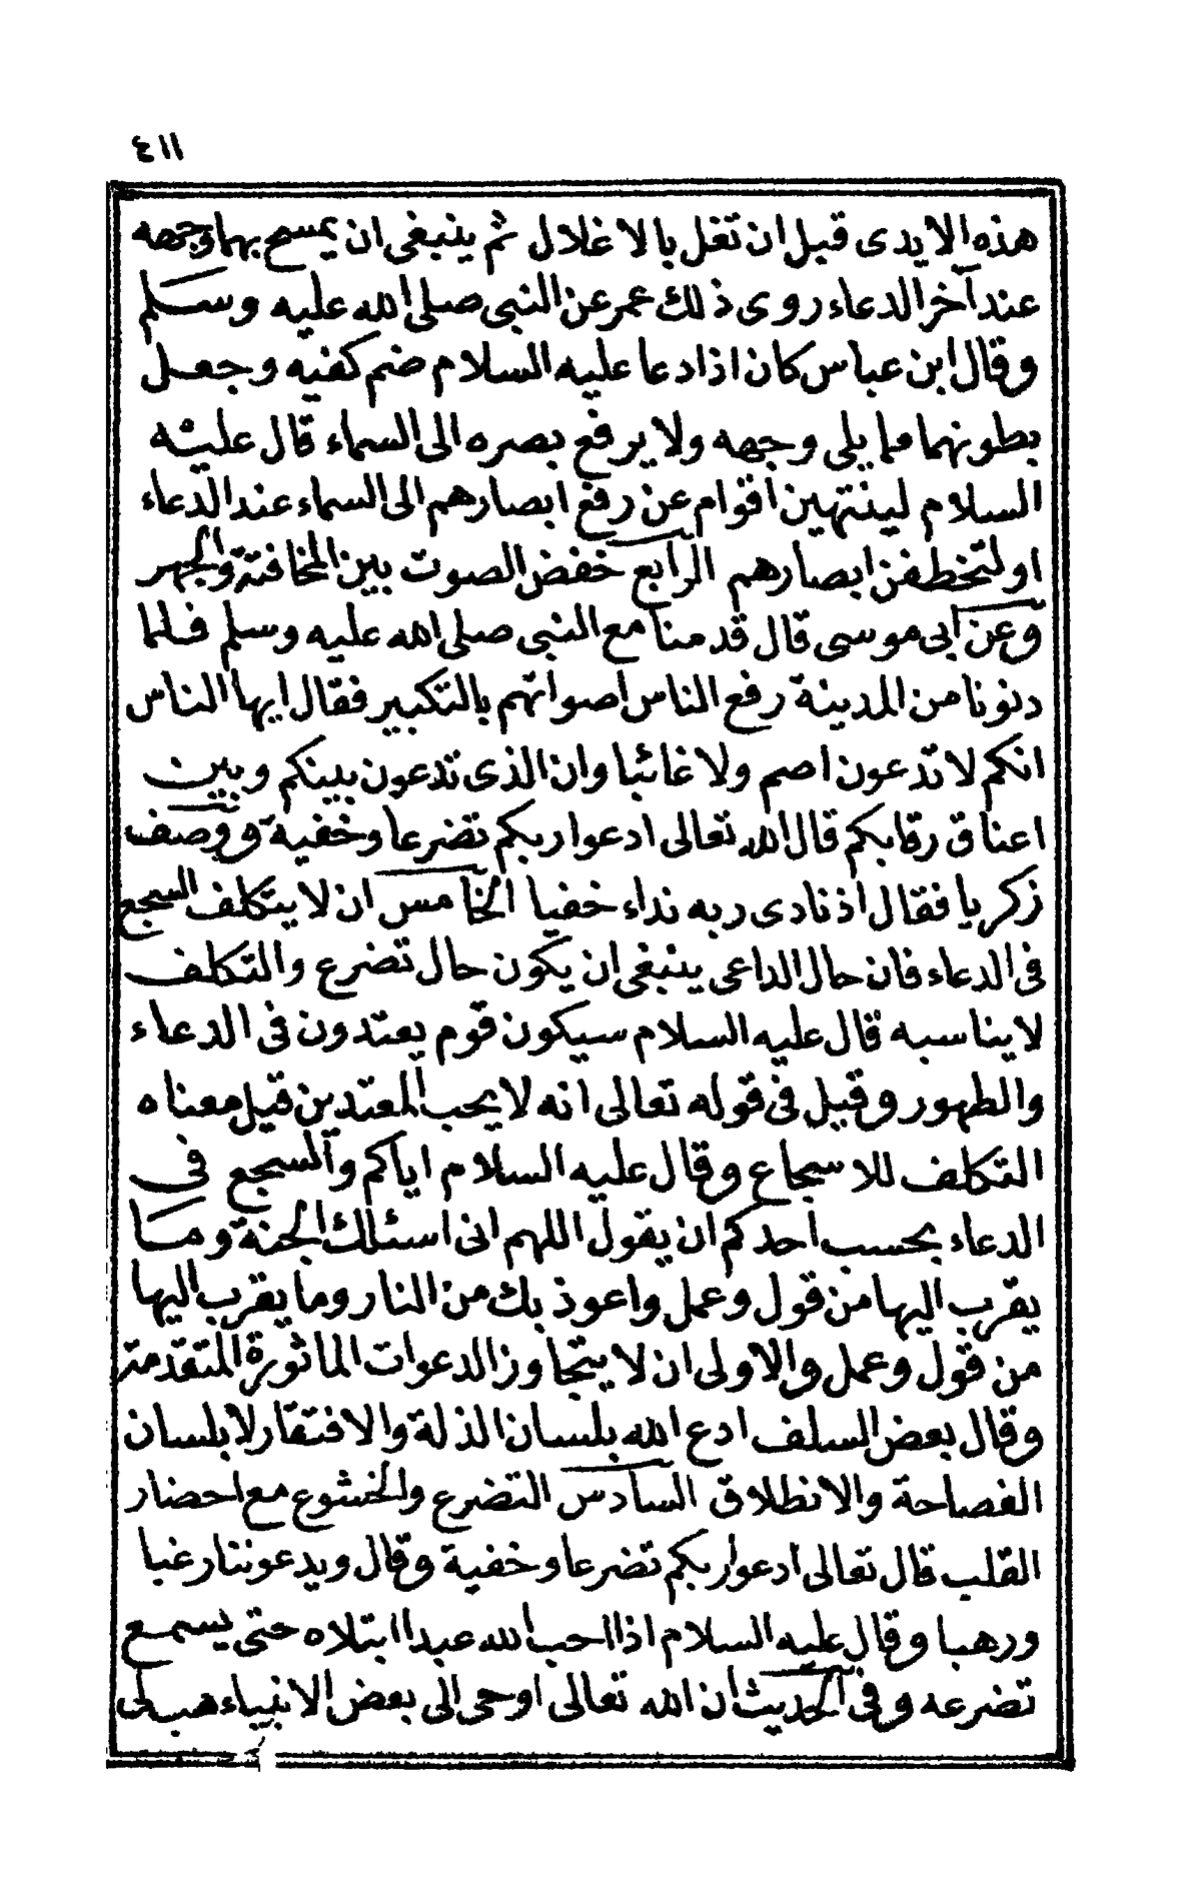 ٤١١
هذه الايدى قبل ان تغل بالاغلال ثم ينبغى ان يمسح بهما وجهه
عند آخر الدعاء روى ذلك عمر عن النبى صلى الله عليه وسلم
وقال ابن عباس كان اذا دعا عليه السلام ضم كفيه وجعل
بطونهما مما يلى وجهه ولا يرفع بصره الى السماء قال عليه
السلام لينتهين اقوام عن رفع ابصارهم الى السماء عند الدعاء
او لتخطفن ابصارهم الرابع خفض الصوت بين المخافتة والجهر
وعن ابى موسى قال قدمنا مع النبى صلى الله عليه وسلم فلما
دنونا من المدينة رفع الناس اصواتهم بالتكبير فقال ايها الناس
انكم لا تدعون اصم ولا غائبا وان الذى تدعون بينكم وبين
اعناق رقابكم قال الله تعالى ادعوا ربكم تضرعا وخفية ووصف
زكريا فقال اذ نادى ربه نداء خفيا الخامس ان لا يتكلف السجع
فى الدعاء فان حال الداعى ينبغى ان يكون حال تضرع والتكلف
لا يناسبه قال عليه السلام سيكون قوم يعتدون فى الدعاء
والطهور وقيل فى قوله تعالى انه لا يحب المعتدين قيل معناه
التكلف للاسجاع وقال عليه السلام اياكم والسجع فى
الدعاء بحسب احدكم ان يقول اللهم انى اسئلك الجنة وما
يقرب اليها من قول وعمل واعوذ بك من النار وما يقرب اليها
من قول وعمل والاولى ان لا يتجاوز الدعوات الماثورة المتقدمة
وقال بعض السلف ادع الله بلسان الذلة والافتقار لا بلسان
الفصاحة والانطلاق السادس التضرع والخشوع مع احضار
القلب قال تعالى ادعوا ربكم تضرعا وخفية وقال ويدعوننا رغبا
ورهبا وقال عليه السلام اذا احب الله عبدا ابتلاه حتى يسمع
تضرعه وفى الحديث ان الله تعالى اوحى الى بعض الانبياء هب لى